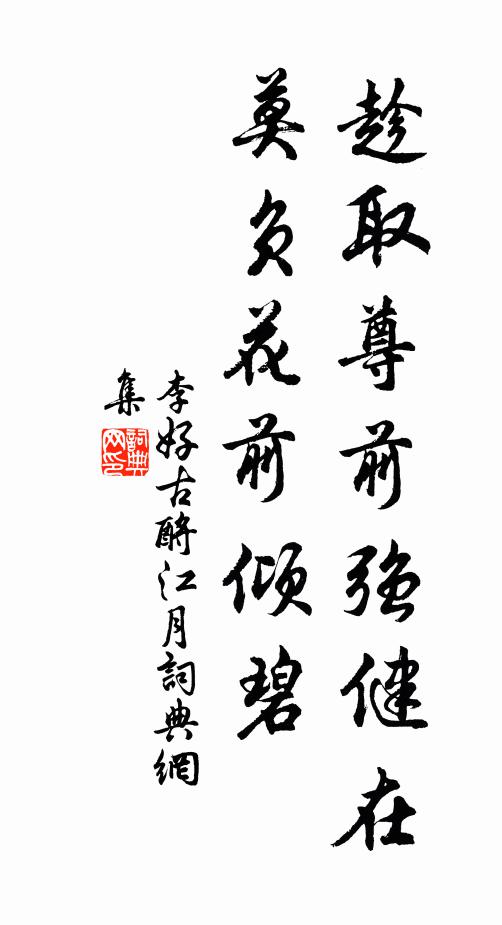 趁取尊前強健在
莫負花前傾碧
李好古酹江月詞典網
集
詞典
网印